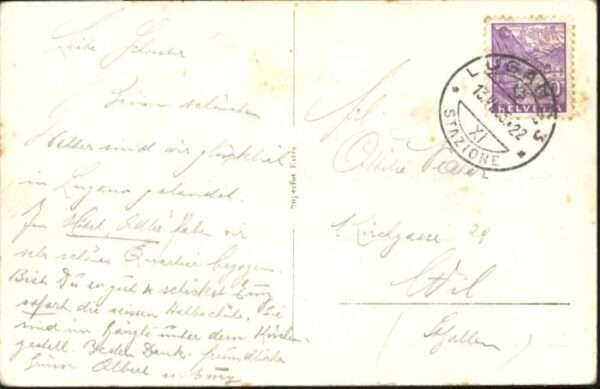 Liebe Schwester
Beim schönsten
Wetter sind wir glücklich
in Lugano gelandet.
Im Hotel Adler haben wir
sehr schönes Quartier bezogen.
Bist Du so gut & schickst Emy
sofort die seinen Halbschuhe. Sie
sind im Gängli unter dem Kasten
gestell. Besten Dank. freundliche
Albert u. Emy
LUGANO 3
22
XI
STAZIONE
HELVETIA
Frl.
Kirchgasse 29
Wil